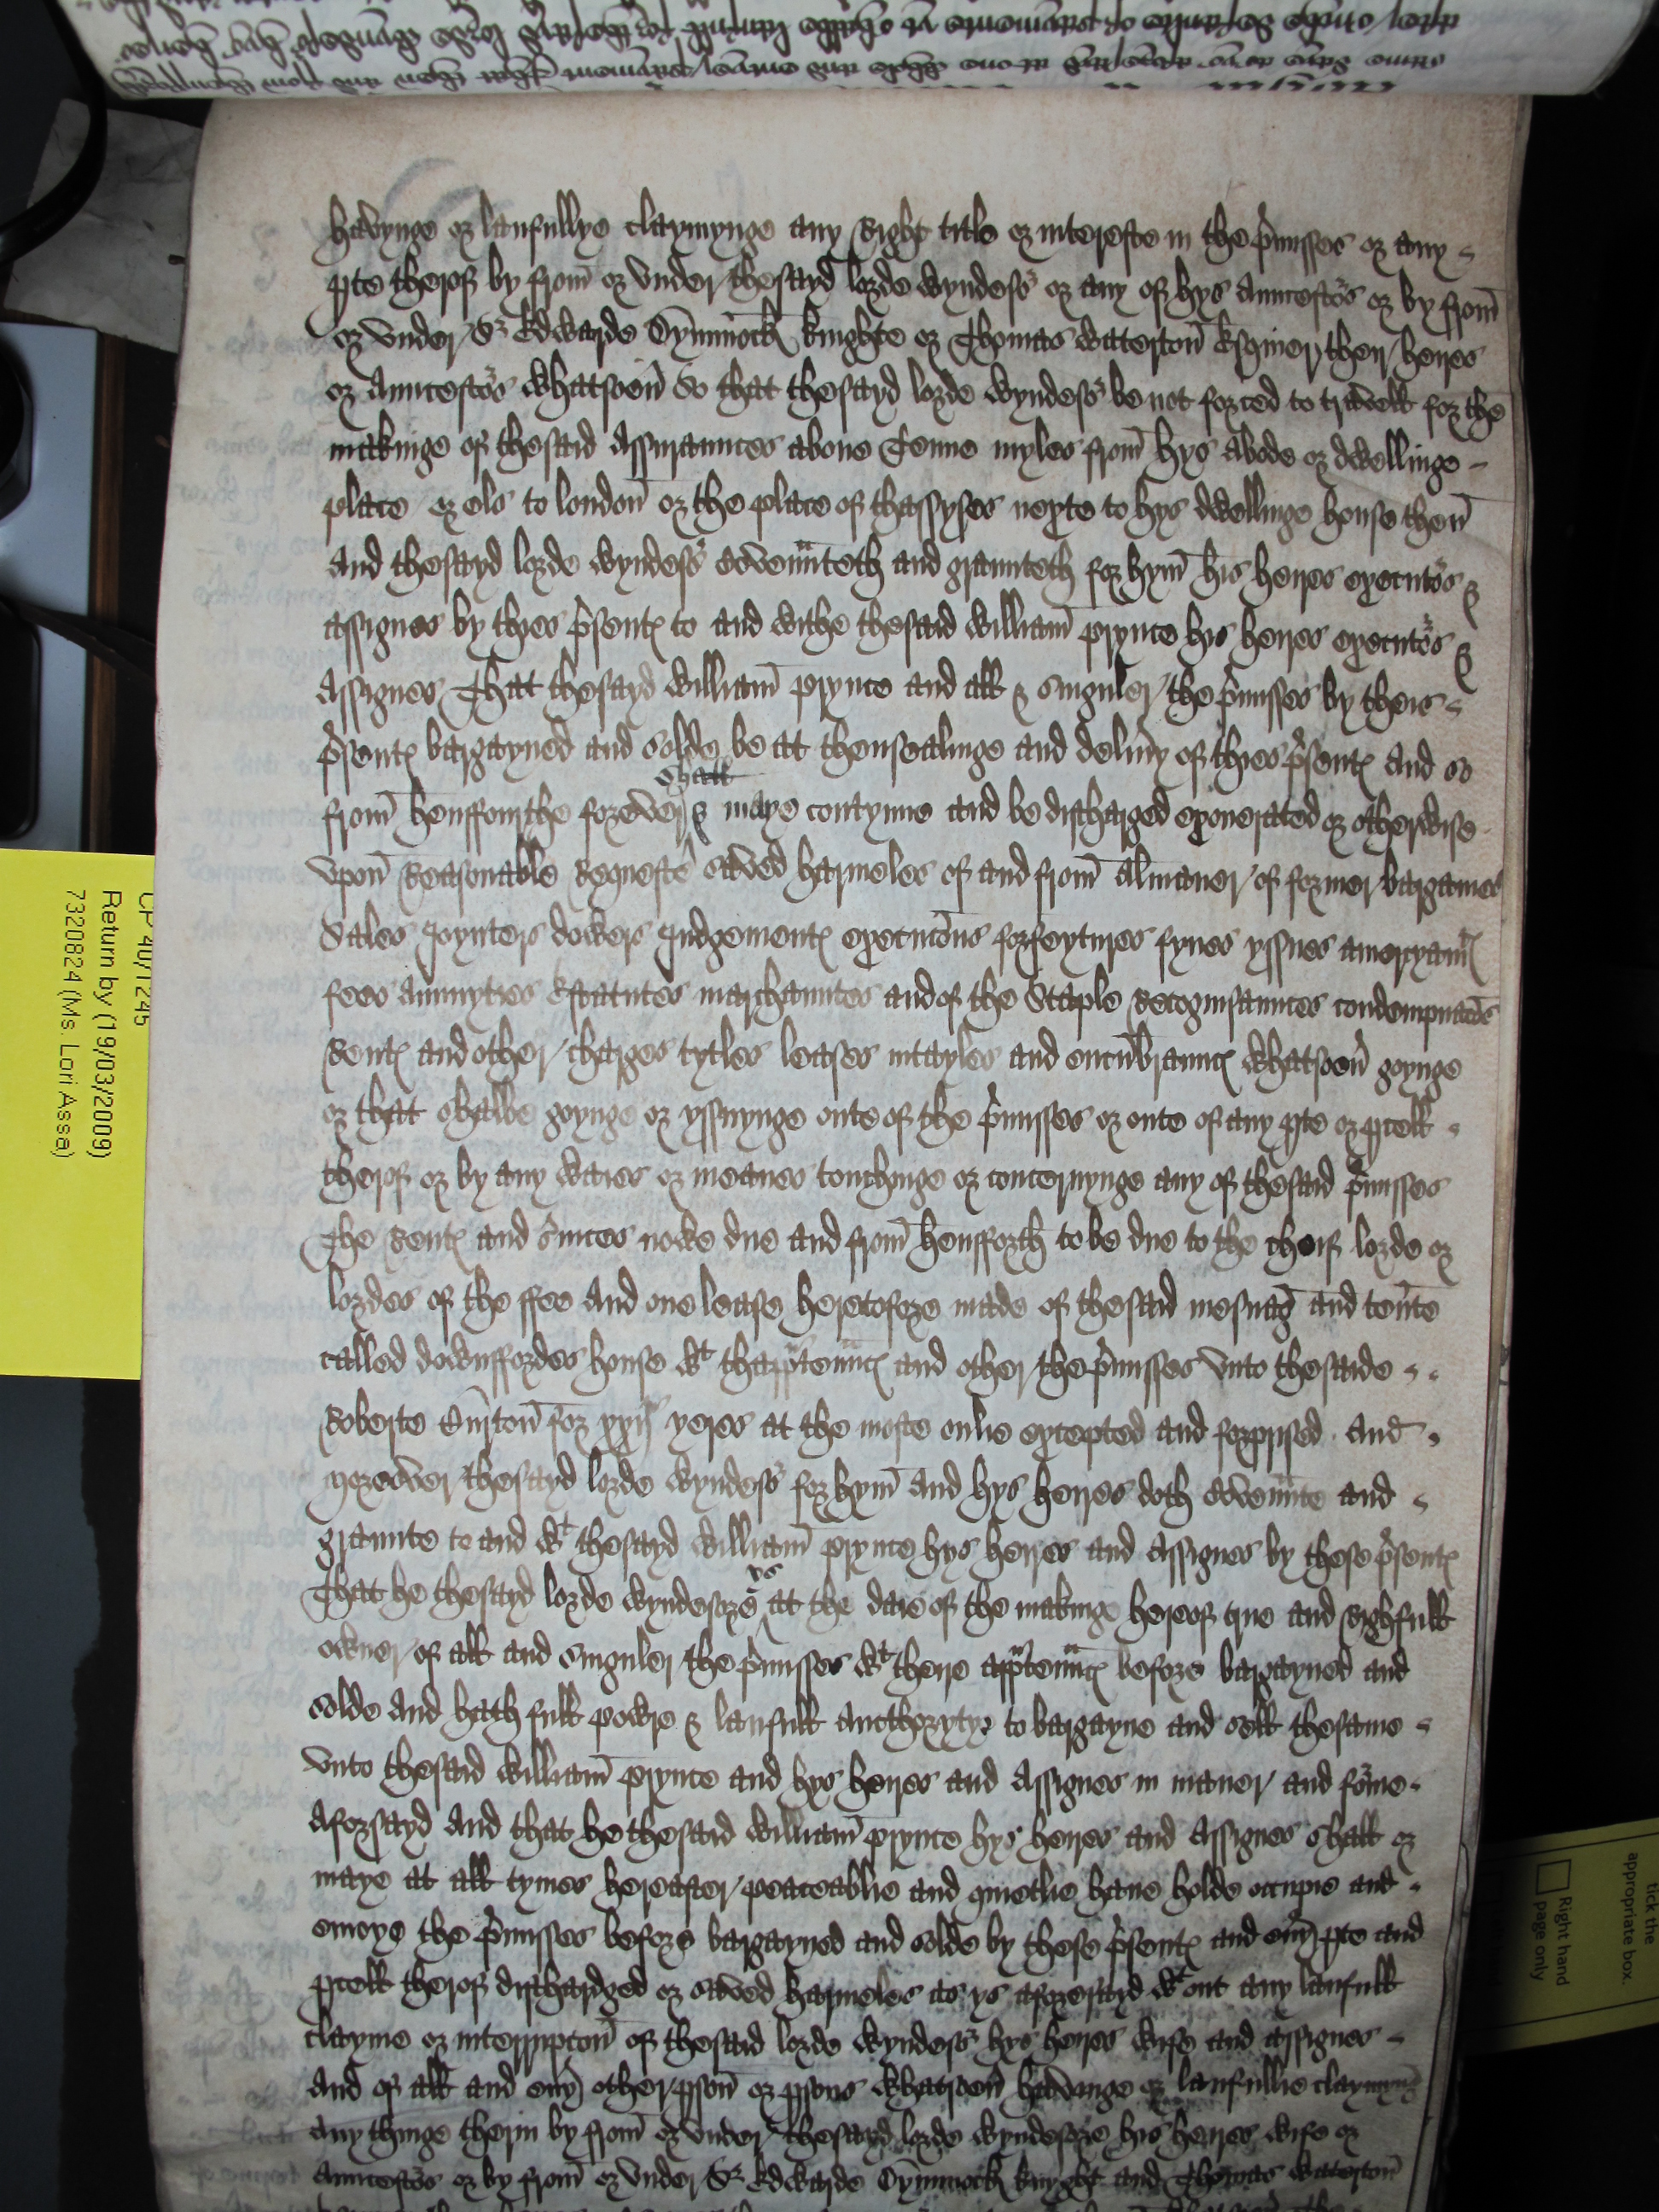 havynge or laufullye claymynge any Right title or intereste in the p'misses or any
p'te therof by from or under thesayd lorde wyndesor or any of hys Auncestors or by from
or under Sr Edwarde Dymmock knighte or Thomas Waterton Esquier ther heires
or Auncestors whatsoeu' So that thesayd lorde wyndesor be not forced to travell for the
makinge of thesaid Assuraunces above Tenne myles from hys Abode or dwellinge
place or els to london or the place of thassyses nexte to hys dwellinge house then
And thesayd lorde wyndesor coven'nteth and graunteth for hym his heires executors &
assignes by thies p'sent to and withe thesaid william prynce his heires executors &
Assignes That thesayd william prynce and all & singuler the p'misses by theis
p'sent bargayned and solde be at thensealinge and deliu'y of thies p'sent And so
from hensfourthe forever shall & maye contynue and be discharged exonerated or otherwise
upon Reasonable Requeste saved harmeles of and from Almaner of former bargaines
Sales Joynters dowers Judgement execucons forfeytures fynes yssues amercyam't
fees Annuyties Estatutes marchauntes and of the Staple Recognisaunces condempnacos
Rent and other charges tytles leases intayles and encu'braunc whatsoeu' goynge
or that shalbe goynge or yssuynge oute of the p'misses or oute of any p'te or p'cell
therof or by any waies or meanes touchinge or concernynge any of thesaid p'misses
The Rent and s'uices nowe due and from hensfforth to be due to the cheif lorde or
lordes of the ffee And one lease heretofore made of thesaid mesuag and ten'te
called downffordes house wt thapp'ten'nc and other the p'misses unto thesaide
Roberte for xxj yeres at the moste onlie excepted and forprised And
moreover thesayd lorde wyndesor for hym And hys heires doth coven'nte and
graunte to and wt thesayd william prynce hys heires and Assignes by these p'sent
That he thesayd lorde wyndesore ys at the daie of the making hereof true and Rightfull
owner of all and singuler the p'misses wt there app'ten'nc before bargayned and
solde And hath full powre & laufull Aucthorytye to bargayne and sell thesame
unto thesaid william prynce and hys heires and Assignes in maner and forme
Aforsayd And that he thesaid william prynce hys heires and Assignes shall or
maye at all tymes hereafter peaceablie and quietlie have holde occupie and
enioye the p'misses before bargayned and solde by these p'sent and eu'y p'te and
p'cell therof dischardged or saved harmeles as ys aforesayd wt out any laufull
clayme or interrupcon of thesaid lorde wyndesor hys heires wife and assignes
And of all and eu'y other p'son or p'sons whatsoeu' havinge or laufullie claymynge
Any thinge therin by from or under thesayd lorde wyndesore his heires wife or
Auncestors or by from or under Sr Edwarde Dymmock knyght and Thomas Waterton
CP 40/1245
Return by (19/03/2009)
7320824 (Ms. Lori Assa)
tick the
appropriate box.
Right hand
page only